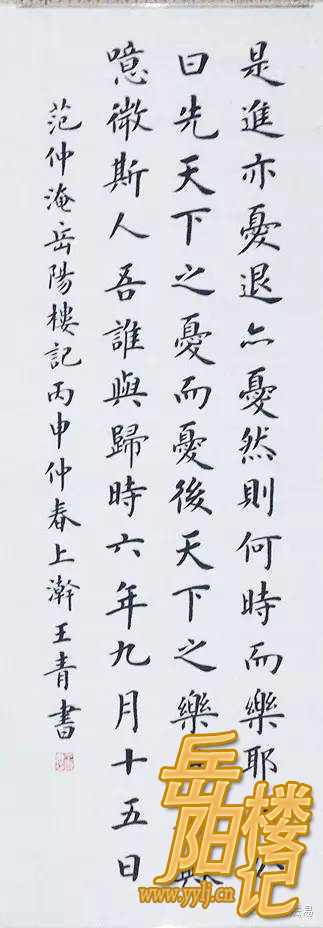 是進亦憂退亦憂然則何時而樂耶
曰先天下之憂而憂後天下之樂
噫微斯人吾誰與歸時六年九月十五日
范仲淹岳陽樓記丙申仲春上澣王青書
岳阳楼记
www.yylj.cn